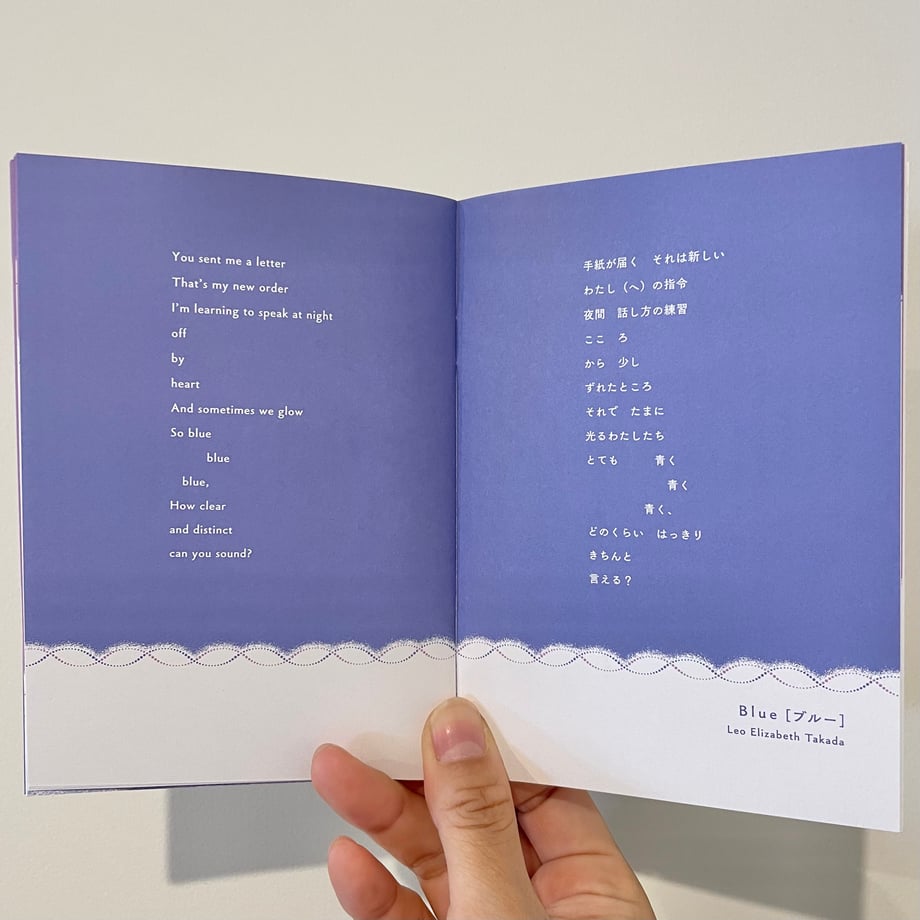 You sent me a letter
That's my new order
I'm learning to speak at night
off
by
heart
And sometimes we glow
So blue
blue
blue,
How clear
and distinct
can you sound?
手紙が届く　それは新しい
わたし（へ）の指令
夜間　話し方の練習
ここ　ろ
から　少し
ずれたところ
それで　たまに
光るわたしたち
とても　　青く
青く
青く、
どのくらい　はっきり
きちんと
言える？
Blue [ブルー]
Leo Elizabeth Takada